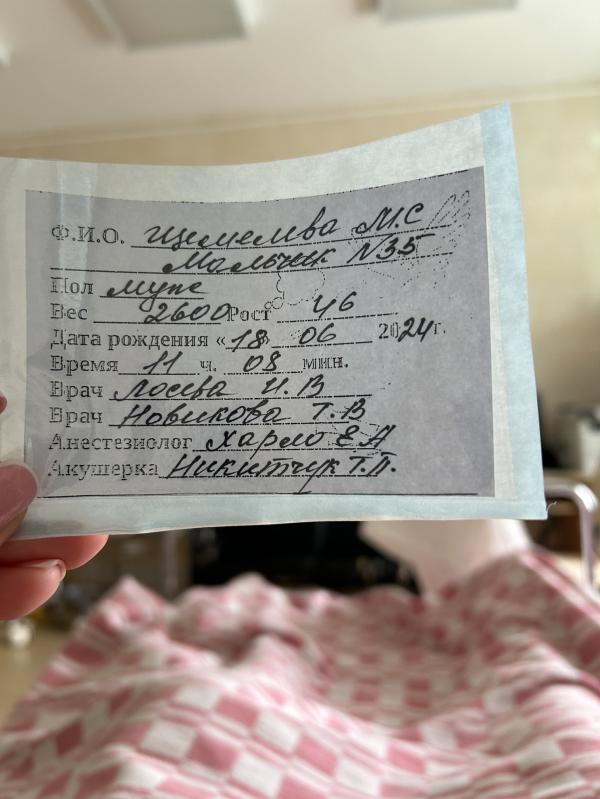 Ф.И.О. Щемелева М.С
Мальчик N35
Пол муж
Вес 2600 Рост 46
Дата рождения «18» 06 2024г.
Время 11 ч. 08 мин.
Врач Лосева И.В
Врач Новикова Т.В
Анестезиолог Харло Е А
Акушерка Никитчук Т.П.